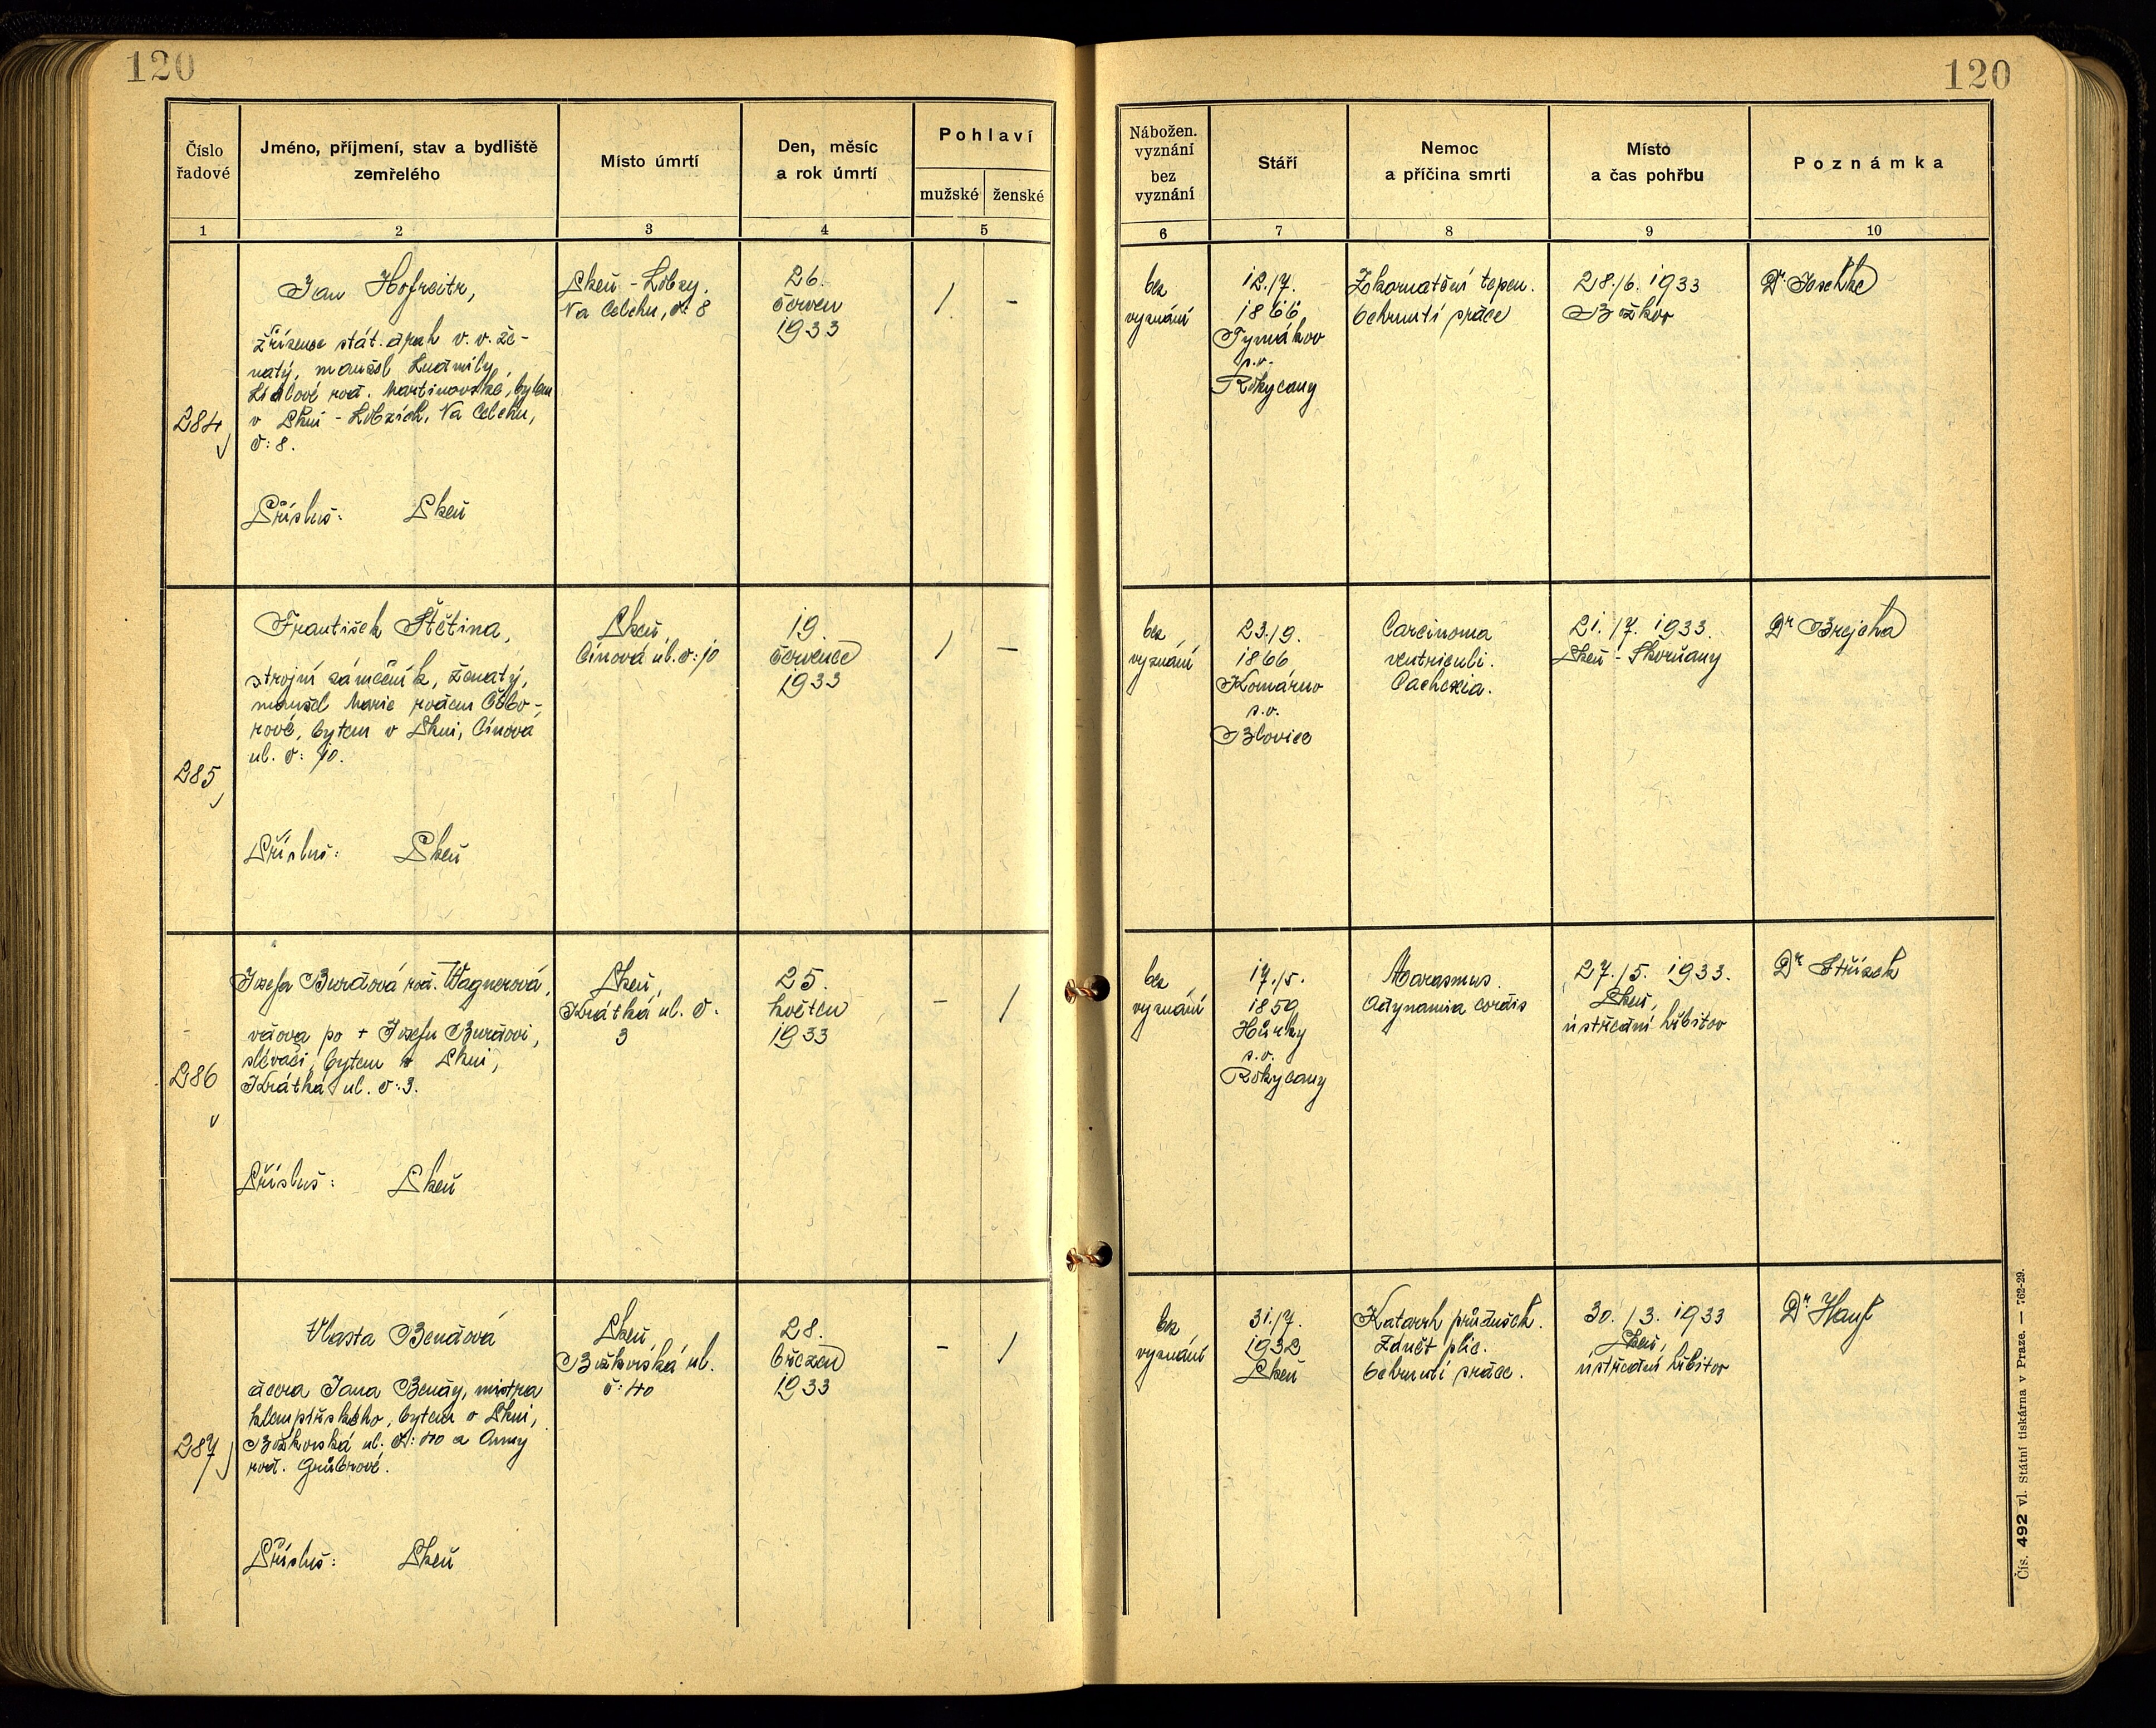 120
120
Číslo
řadové
Jméno, příjmení, stav a bydliště
zemřelého
Místo úmrtí
Den, měsíc
a rok úmrtí
Pohlaví
mužské
ženské
Nábožen.
vyznání
bez
vyznání
Stáří
Nemoc
a příčina smrti
Místo
a čas pohřbu
Poznámka
1
2
3
4
5
6
7
8
9
10
284
Jan Hofreitr,
zřízenec stát. drah v. v. že-
natý, manžel Ludmily
rod. Martinovské, bytem
v Plzni - Lobzích, Na Celchu,
č: 8.
Přísluš: Plzeň
Plzeň - Lobzy.
Na Celchu, č: 8
26.
červen
1933
/
-
bez
vyznání
12./7.
1866
Tymákov
p.o.
Rokycany
Zkornatění tepen.
Ochrnutí srdce
28./6. 1933
Božkov
Dr Joschke
285
František Štětina,
strojní zámečník, ženatý,
manžel Marie rozem Čibo-
rové, bytem v Plzni, Cínová
ul. č: 10.
Přísluš: Plzeň
Plzeň,
Cínová ul. č: 10
19.
července
1933
/
-
bez
vyznání
23./9.
1866
Komárno
s.o.
Blovice
Carcinoma
ventriculi.
Cachexia.
21./7. 1933.
Plzeň - Skvrňany
Dr Brejcha
286
Josefa Burdová rod. Wagnerová,
vdova po + Josefu Burdovi,
slévači, bytem v Plzni,
Krátká ul. č: 3.
Přísluš: Plzeň
Plzeň,
Krátká ul. č:
3
25.
květen
1933
-
/
bez
vyznání
17./5.
1859
Hůrky
s.o.
Rokycany
Marasmus.
Adynamia cordis
27./5. 1933.
Plzeň,
ústřední hřbitov
Dr Střízek
287
Vlasta Bendová
dcera Jana Bendy, mistra
klempířského, bytem v Plzni,
Božkovská ul. č: 40 a Anny
rod. Grůbrové.
Přísluš: Plzeň
Plzeň,
Božkovská ul.
č: 40
28.
březen
1933
-
/
bez
vyznání
31./7.
1932
Plzeň
Katarrh průdušek.
Zánět plic.
Ochrnutí srdce.
30. /3. 1933
Plzeň,
ústřední hřbitov
Dr Haufe
Čís. 492 vl. Státní tiskárna v Praze. — 762-29.